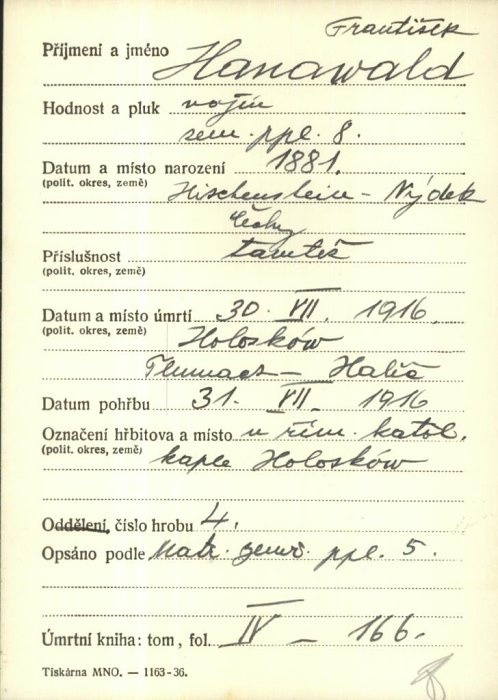 František
Příjmení a jméno Hanawald
Hodnost a pluk vojín
zem. ppl. 8.
Datum a místo narození 1881.
(polit. okres, země)
Hischenstein - Nýdek
Čechy
Příslušnost tamtéž
(polit. okres, země)
Datum a místo úmrtí 30. VII. 1916.
(polit. okres, země)
Holosków
Tlumacz - Halič
Datum pohřbu 31. VII. 1916
Označení hřbitova a místo u řím. katol.
(polit. okres, země)
kaple Holosków
Oddělení, číslo hrobu 4.
Opsáno podle Matr. zemř. ppl. 5.
Úmrtní kniha: tom, fol. IV - 166.
Tiskárna MNO. — 1163-36.